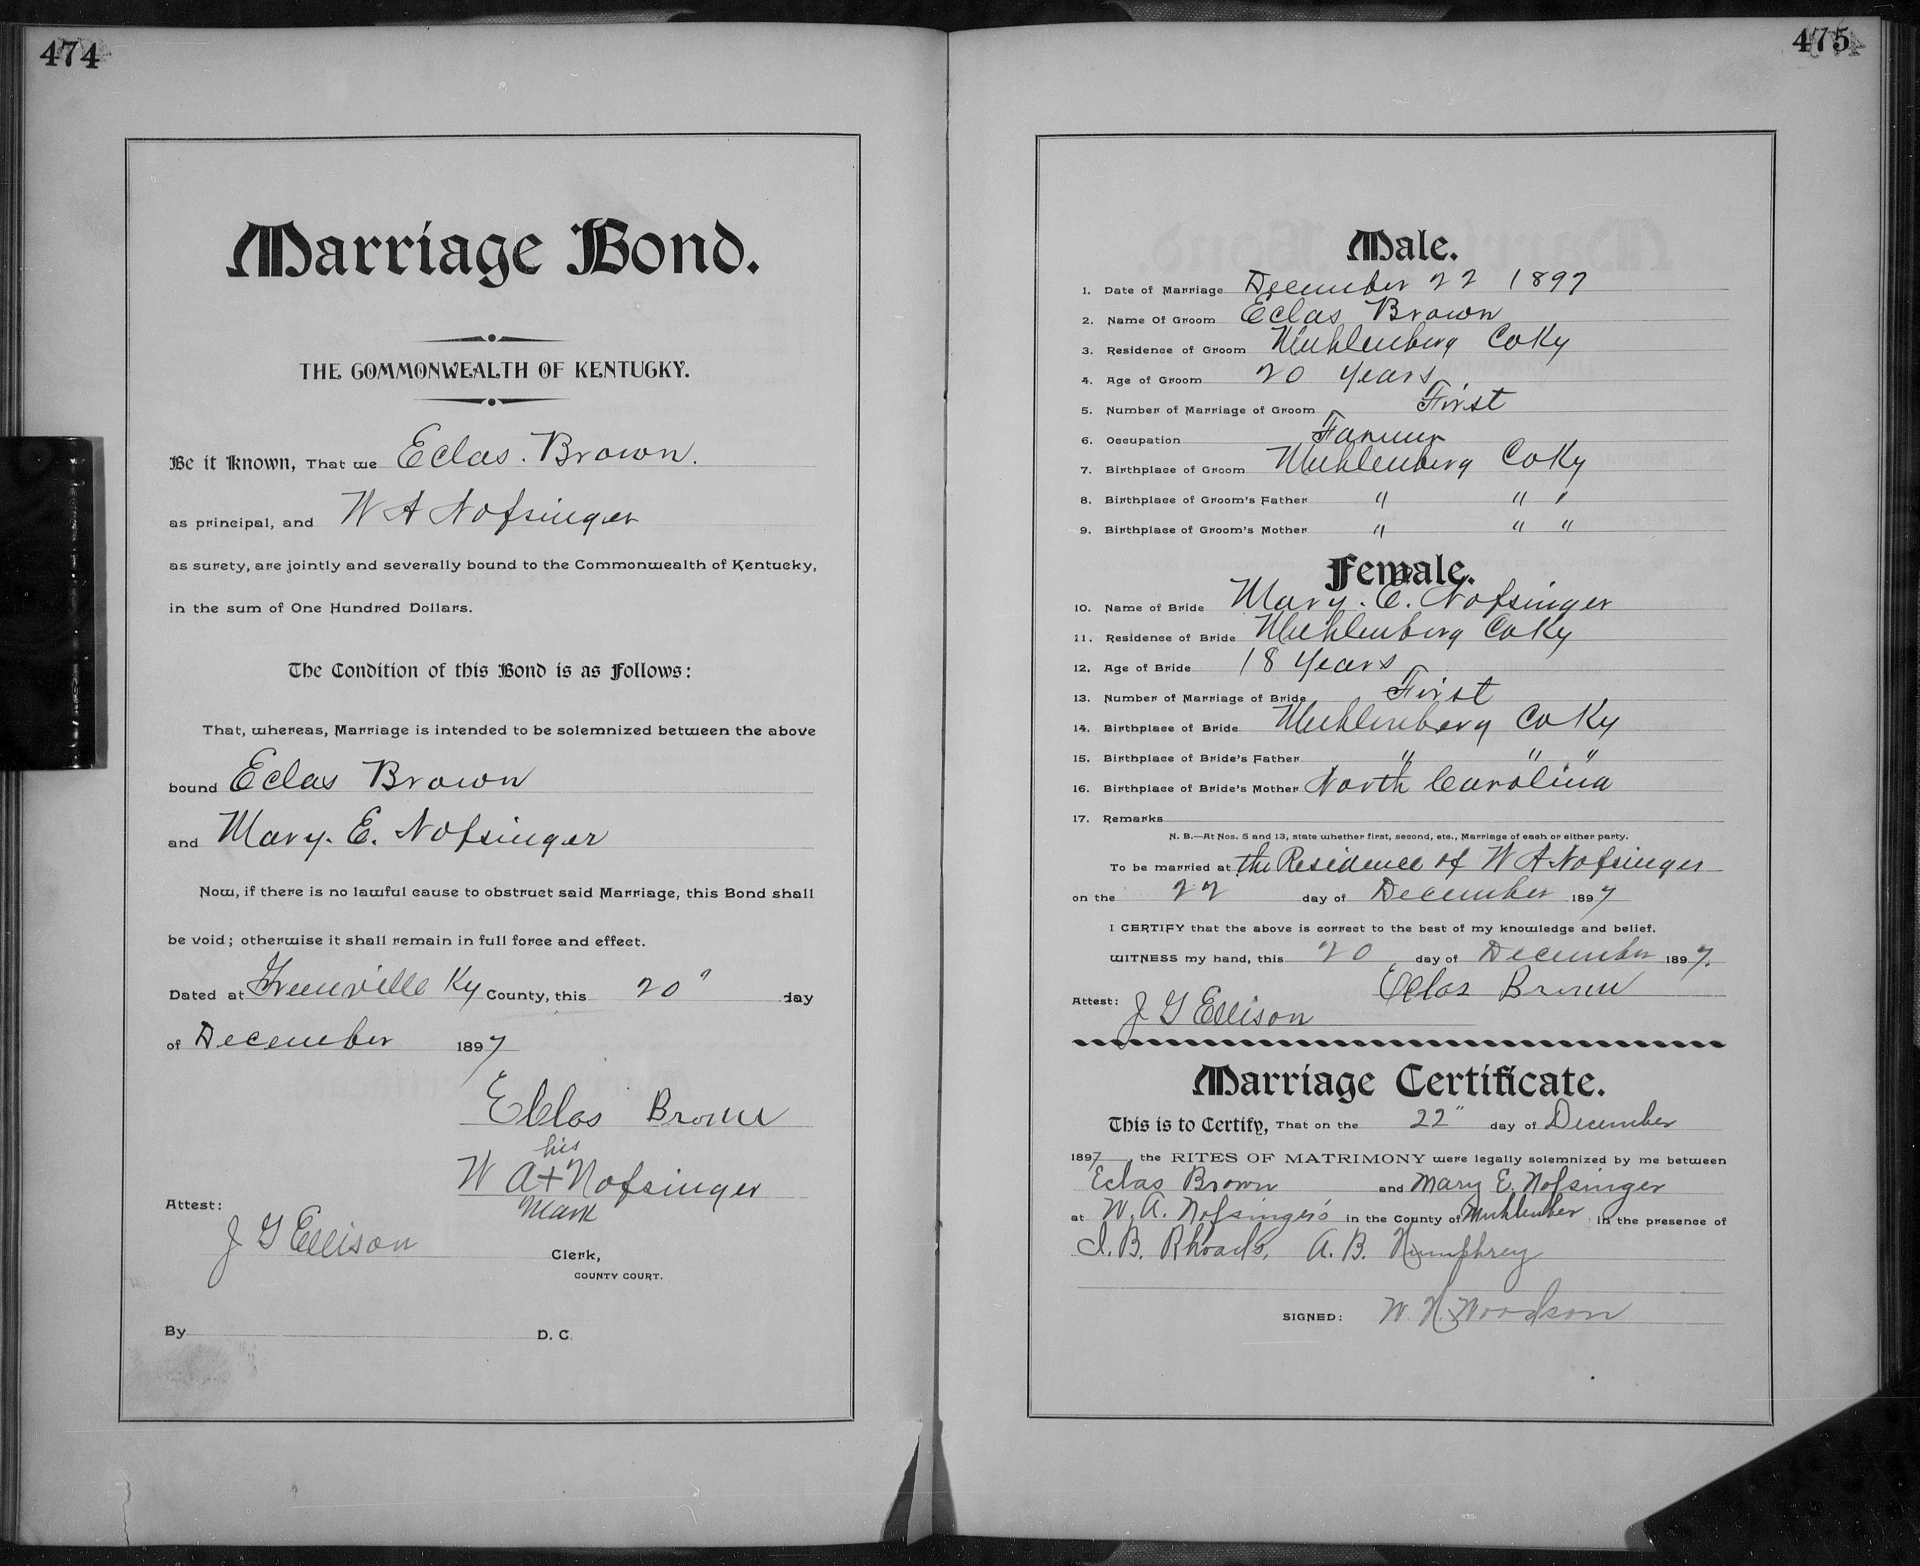 474
Marriage Bond.
THE COMMONWEALTH OF KENTUCKY.
Be it Known, That we Eclas. Brown.
as principal, and W A Nofsinger
as surety, are jointly and severally bound to the Commonwealth of Kentucky,
in the sum of One Hundred Dollars.
The Condition of this Bond is as Follows:
That, whereas, Marriage is intended to be solemnized between the above
bound Eclas Brown
and Mary. E. Nofsinger
Now, if there is no lawful cause to obstruct said Marriage, this Bond shall
be void; otherwise it shall remain in full force and effect.
Dated at Greenville Ky County, this 20" day
of December 1897
Eclas Brown
his
W A + Nofsinger
Mark
Attest:
J G Ellison Clerk,
COUNTY COURT.
By D. C.
475
Male.
1. Date of Marriage December 22 1897
2. Name Of Groom Eclas Brown
3. Residence of Groom Muhlenberg Co Ky
4. Age of Groom 20 years
5. Number of Marriage of Groom First
6. Occupation Farmer
7. Birthplace of Groom Muhlenberg Co Ky
8. Birthplace of Groom's Father " " "
9. Birthplace of Groom's Mother " " "
Female.
10. Name of Bride Mary. E. Nofsinger
11. Residence of Bride Muhlenberg Co Ky
12. Age of Bride 18 Years
13. Number of Marriage of Bride First
14. Birthplace of Bride Muhlenberg Co Ky
15. Birthplace of Bride's Father " " "
16. Birthplace of Bride's Mother North Carolina
17. Remarks
N. B.—At Nos. 5 and 13, state whether first, second, etc., Marriage of each or either party.
To be married at the Residence of W A Nofsinger
on the 22 day of December 1897
I CERTIFY that the above is correct to the best of my knowledge and belief.
WITNESS my hand, this 20 day of December 1897.
Eclas Brown
Attest: J G Ellison
Marriage Certificate.
This is to Certify, That on the 22" day of December
1897, the RITES OF MATRIMONY were legally solemnized by me between
Eclas Brown and Mary E. Nofsinger
at W. A. Nofsinger's in the County of Muhlenber, in the presence of
J. B. Rhoads, A. B. Humphrey
SIGNED: W. H. Woodson